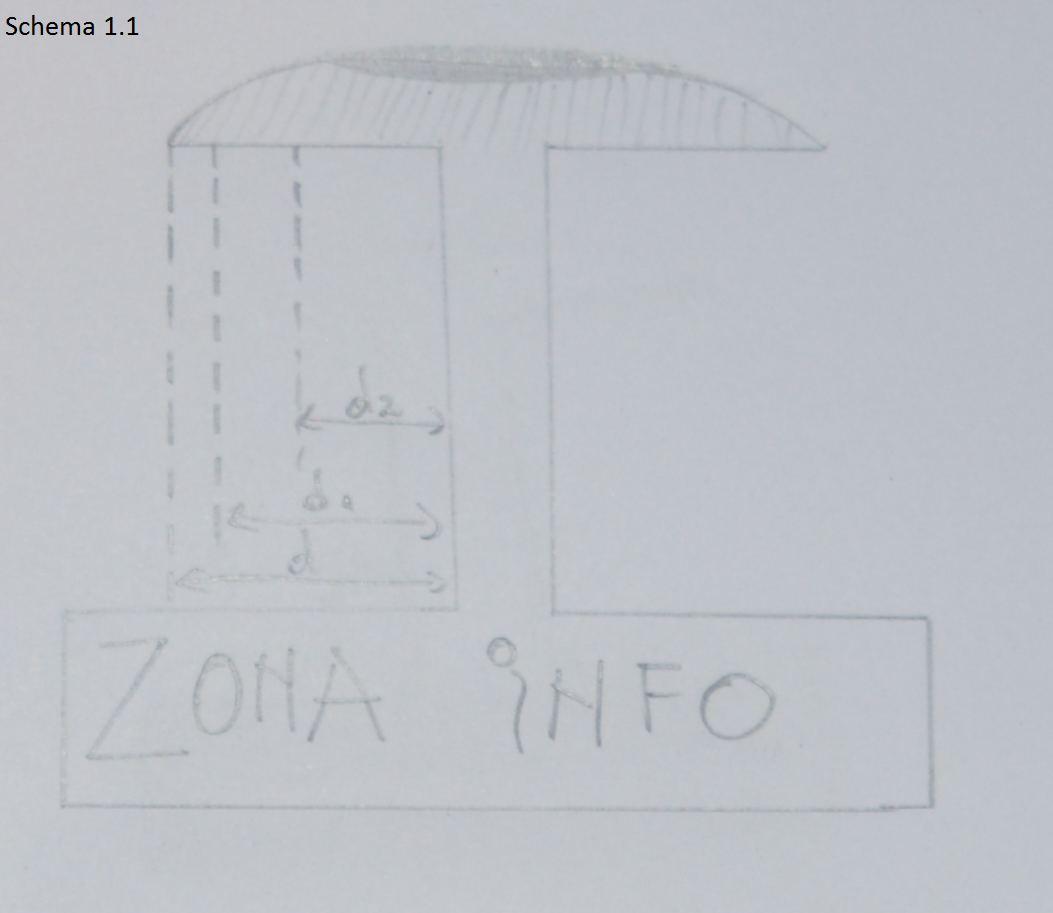 Schema 1.1
d2
d1
d
ZONA iNFO